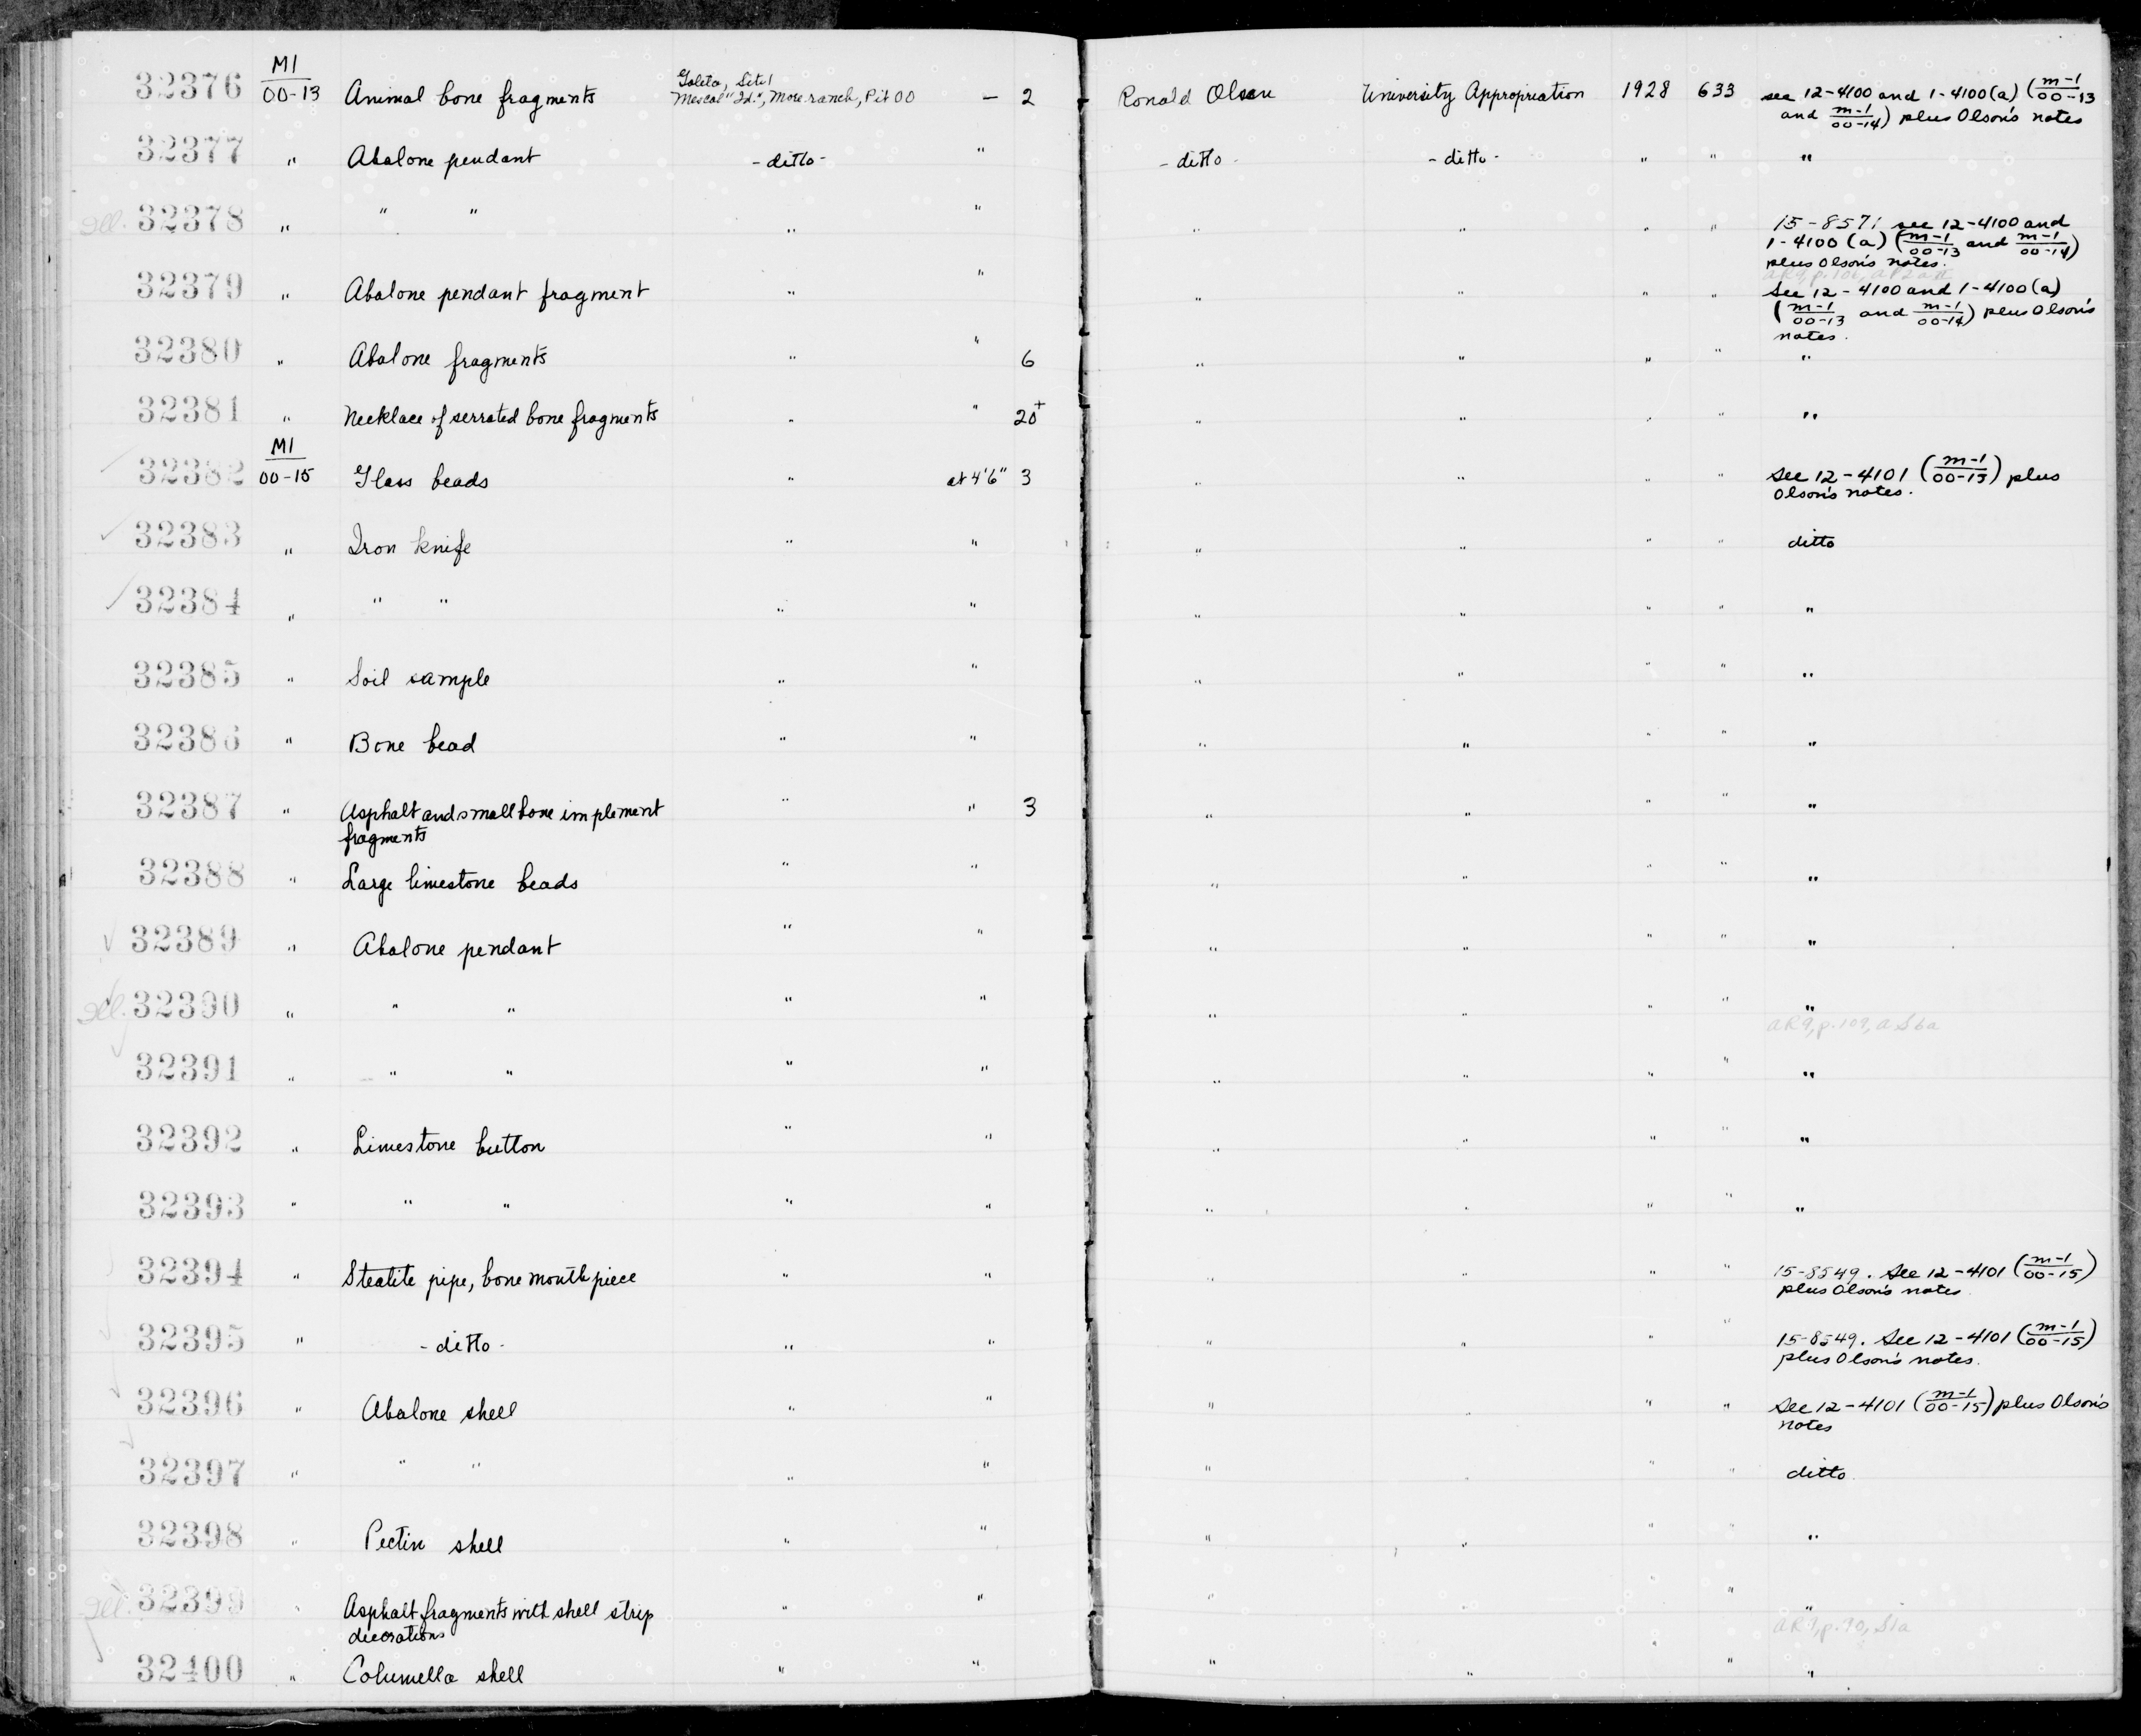 32376 M1/00-13 Animal bone fragments Goleta, Site 1 Mescal "Id.", More ranch, Pit 00 — 2 Ronald Olson University Appropriation 1928 633 see 12-4100 and 1-4100(a) (m-1/00-13
and m-1/00-14) plus Olson's notes
32377 " Abalone pendant - ditto - " - ditto - - ditto - " " "
Ill. 32378 " " " " " " " " " 15-8571 see 12-4100 and
1-4100 (a) (m-1/00-13 and m-1/00-14)
plus Olson's notes.
32379 " Abalone pendant fragment " " " " " " See 12-4100 and 1-4100(a)
(m-1/00-13 and m-1/00-14) plus Olson's
notes.
32380 " Abalone fragments " " 6 " " " " "
32381 " Necklace of serrated bone fragments " " 20+ " " " " "
32382 M1/00-15 Glass beads " at 4'6" 3 " " " " See 12-4101 (m-1/00-15) plus
Olson's notes.
32383 " Iron knife " " " " " " ditto
32384 " " " " " " " " " "
32385 " Soil sample " " " " " " "
32386 " Bone bead " " " " " " "
32387 " Asphalt and small bone implement " " 3 " " " " "
fragments
32388 " Large limestone beads " " " " " " "
32389 " Abalone pendant " " " " " " "
Ill. 32390 " " " " " " " " " "
AR9, p.109, a S6a
32391 " " " " " " " " " "
32392 " Limestone button " " " " " " "
32393 " " " " " " " " " "
32394 " Steatite pipe, bone mouthpiece " " " " " " 15-8549. See 12-4101 (m-1/00-15)
plus Olson's notes
32395 " - ditto - " " " " " " 15-8549. See 12-4101 (m-1/00-15)
plus Olson's notes.
32396 " Abalone shell " " " " " " See 12-4101 (m-1/00-15) plus Olson's
notes
32397 " " " " " " " " " ditto
32398 " Pectin shell " " " " " " "
Ill. 32399 " Asphalt fragments with shell strip " " " " " " "
decorations
32400 " Columella shell " " " " " " "